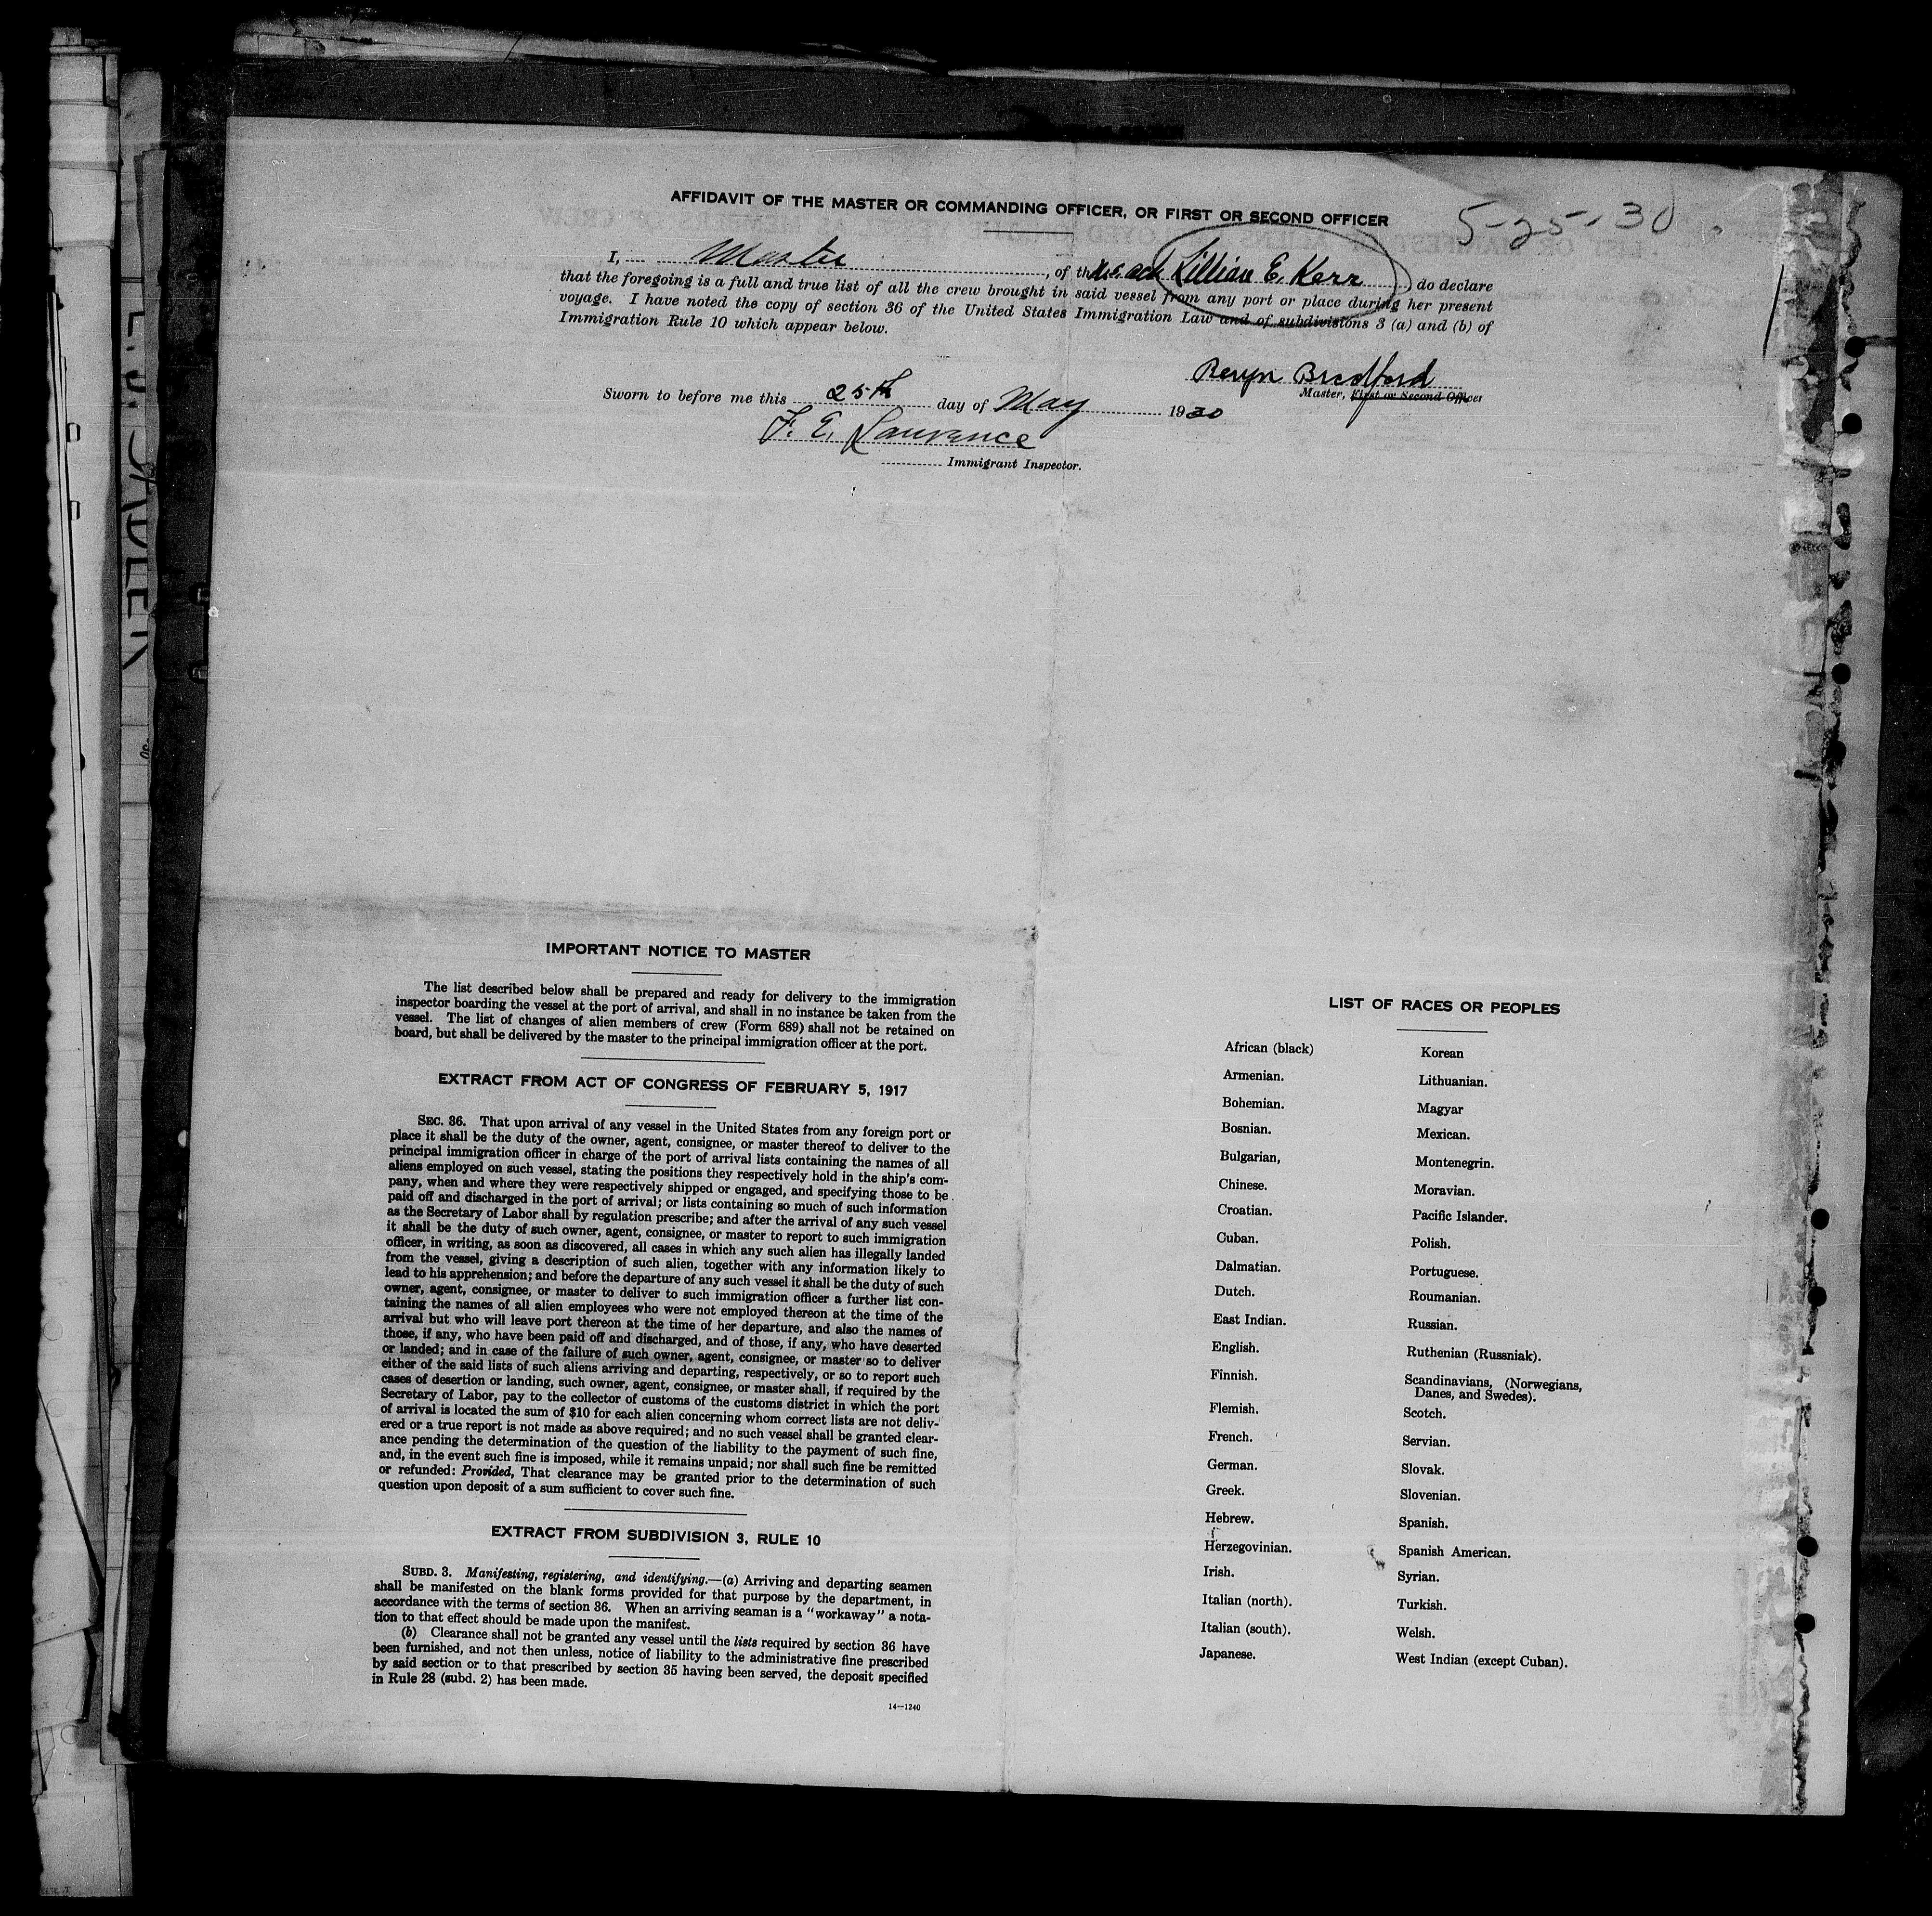 AFFIDAVIT OF THE MASTER OR COMMANDING OFFICER, OR FIRST OR SECOND OFFICER
5-25-30
I, Master, of the Lillian E. Kerr do declare
that the foregoing is a full and true list of all the crew brought in said vessel from any port or place during her present
voyage. I have noted the copy of section 36 of the United States Immigration Law and of subdivisions 3 (a) and (b) of
Immigration Rule 10 which appear below.
Bradford
Master, First or Second Officer
Sworn to before me this 25th day of May 1930
F. E. Lawrence
Immigrant Inspector.
IMPORTANT NOTICE TO MASTER
The list described below shall be prepared and ready for delivery to the immigration
inspector boarding the vessel at the port of arrival, and shall in no instance be taken from the
vessel. The list of changes of alien members of crew (Form 689) shall not be retained on
board, but shall be delivered by the master to the principal immigration officer at the port.
EXTRACT FROM ACT OF CONGRESS OF FEBRUARY 5, 1917
SEC. 36. That upon arrival of any vessel in the United States from any foreign port or
place it shall be the duty of the owner, agent, consignee, or master thereof to deliver to the
principal immigration officer in charge of the port of arrival lists containing the names of all
aliens employed on such vessel, stating the positions they respectively hold in the ship's com-
pany, when and where they were respectively shipped or engaged, and specifying those to be
paid off and discharged in the port of arrival; or lists containing so much of such information
as the Secretary of Labor shall by regulation prescribe; and after the arrival of any such vessel
it shall be the duty of such owner, agent, consignee, or master to report to such immigration
officer, in writing, as soon as discovered, all cases in which any such alien has illegally landed
from the vessel, giving a description of such alien, together with any information likely to
lead to his apprehension; and before the departure of any such vessel it shall be the duty of such
owner, agent, consignee, or master to deliver to such immigration officer a further list con-
taining the names of all alien employees who were not employed thereon at the time of the
arrival but who will leave port thereon at the time of her departure, and also the names of
those, if any, who have been paid off and discharged, and of those, if any, who have deserted
or landed; and in case of the failure of such owner, agent, consignee, or master so to deliver
either of the said lists of such aliens arriving and departing, respectively, or so to report such
cases of desertion or landing, such owner, agent, consignee, or master shall, if required by the
Secretary of Labor, pay to the collector of customs of the customs district in which the port
of arrival is located the sum of $10 for each alien concerning whom correct lists are not deliv-
ered or a true report is not made as above required; and no such vessel shall be granted clear-
ance pending the determination of the question of the liability to the payment of such fine,
and, in the event such fine is imposed, while it remains unpaid; nor shall such fine be remitted
or refunded: Provided, That clearance may be granted prior to the determination of such
question upon deposit of a sum sufficient to cover such fine.
EXTRACT FROM SUBDIVISION 3, RULE 10
SUBD. 3. Manifesting, registering, and identifying.—(a) Arriving and departing seamen
shall be manifested on the blank forms provided for that purpose by the department, in
accordance with the terms of section 36. When an arriving seaman is a "workaway" a nota-
tion to that effect should be made upon the manifest.
(b) Clearance shall not be granted any vessel until the lists required by section 36 have
been furnished, and not then unless, notice of liability to the administrative fine prescribed
by said section or to that prescribed by section 35 having been served, the deposit specified
in Rule 28 (subd. 2) has been made.
14—1240
LIST OF RACES OR PEOPLES
African (black)
Armenian.
Bohemian.
Bosnian.
Bulgarian,
Chinese.
Croatian.
Cuban.
Dalmatian.
Dutch.
East Indian.
English.
Finnish.
Flemish.
French.
German.
Greek.
Hebrew.
Herzegovinian.
Irish.
Italian (north).
Italian (south).
Japanese.
Korean
Lithuanian.
Magyar
Mexican.
Montenegrin.
Moravian.
Pacific Islander.
Polish.
Portuguese.
Roumanian.
Russian.
Ruthenian (Russniak).
Scandinavians, (Norwegians,
Danes, and Swedes).
Scotch.
Servian.
Slovak.
Slovenian.
Spanish.
Spanish American.
Syrian.
Turkish.
Welsh.
West Indian (except Cuban).